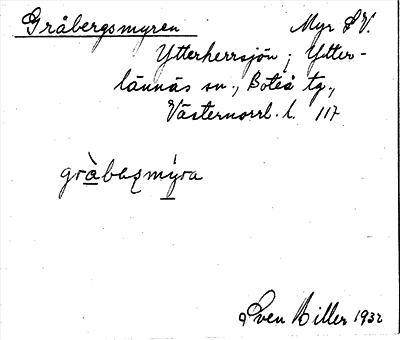 Gråbergsmyren Myr SV.
Ytterherrsjön; Ytter-
lännäs sn., Boteå tg.,
Västernorrl. l. 117
gràbæʂmýra
Sven Biller 1932